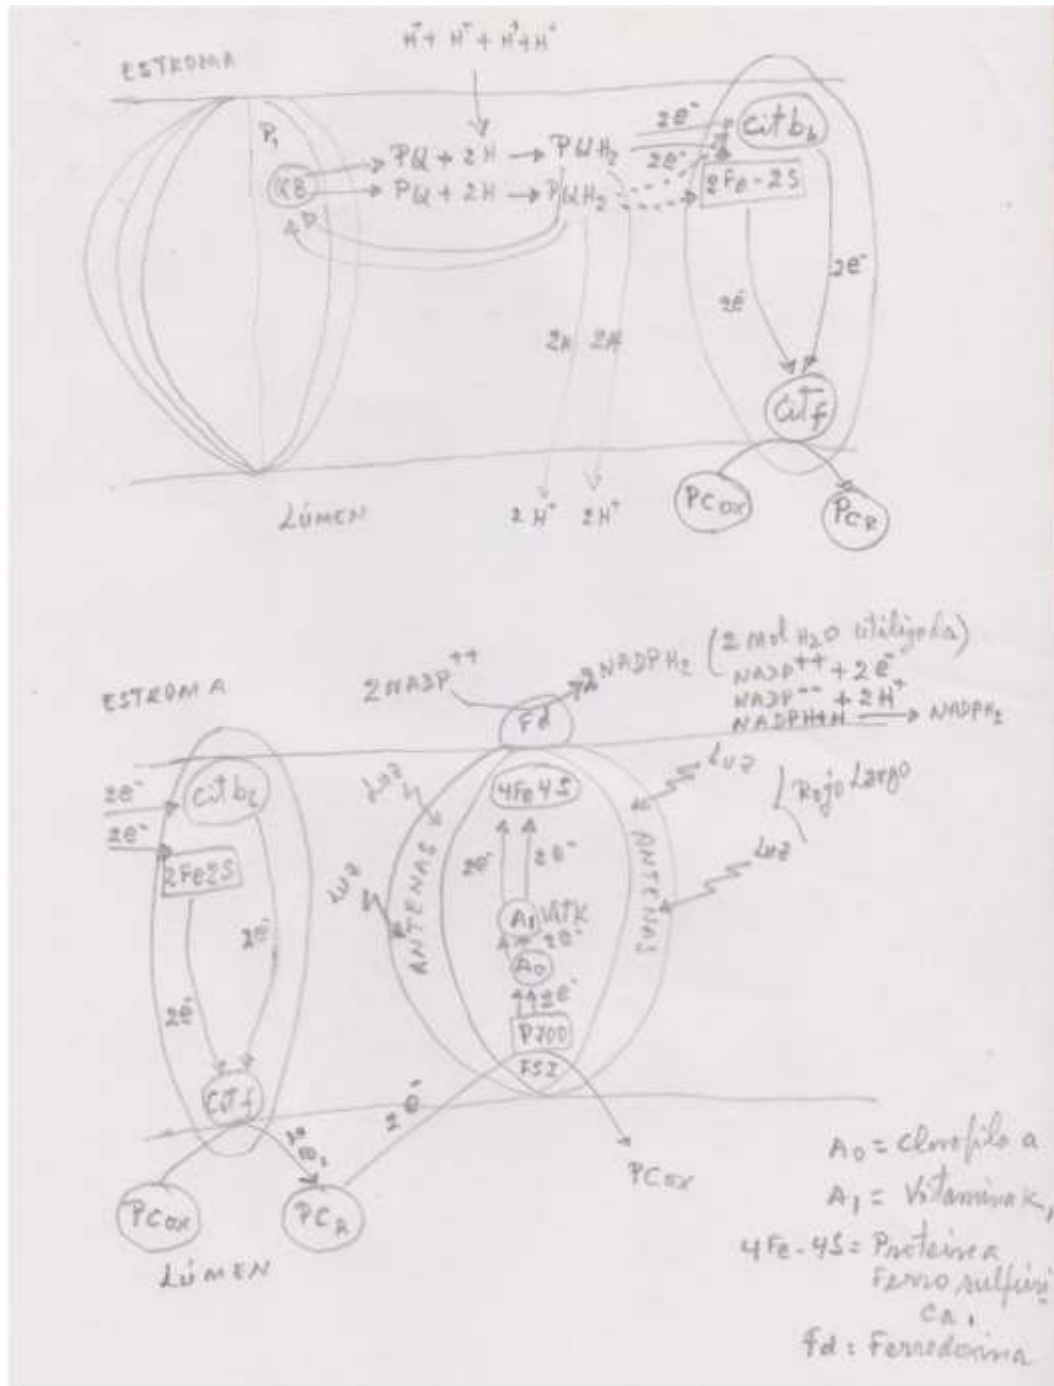 H⁺ + H⁺ + H⁺ + H⁺
ESTROMA
P₁
QB
PQ + 2H → PQH₂
PQ + 2H → PQH₂
2e⁻
2e⁻
Cit b₆
2Fe-2S
2e⁻
2e⁻
2H 2H
Cit f
LÚMEN
2H⁺ 2H⁺
PCox
PCR
ESTROMA
2NADP⁺⁺
2NADPH₂ (2 mol H₂O utilizada)
NADP⁺⁺ + 2e⁻
NADP⁻⁻ + 2H⁺
NADPH+H → NADPH₂
Fd
2e⁻
2e⁻
Cit b₆
2Fe2S
2e⁻
2e⁻
Cit f
Luz
Luz
ANTENAS
4Fe4S
2e⁻
2e⁻
A₁ Vit K
2e⁻
A₀
2e⁻
P700
FSI
ANTENAS
Luz
Luz
Rojo Largo
2e⁻
PCox
PCox
PCR
LÚMEN
A₀ = Clorofila a
A₁ = Vitamina K₁
4Fe-4S = Proteina
Ferro sulfúri
ca.
Fd = Ferredoxina